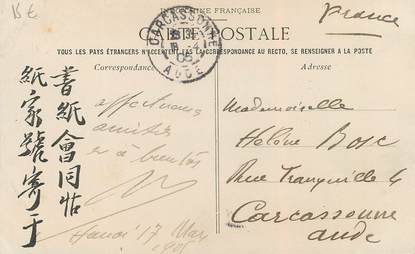 15€
INE FRANÇAISE
France
CARTE POSTALE
TOUS LES PAYS ÉTRANGERS N'ACCEPTENT PAS LA CORRESPONDANCE AU RECTO, SE RENSEIGNER A LA POSTE
Correspondance
Adresse
CARCASSONNE
05
AUDE
書紙會同帖
紙家號寄于
affectueuse
amitiés
et à bientôt
Hanoi 17 Mars
1905
Mademoiselle
Hélène Bosc
Rue Tranquille 4
Carcassonne
Aude